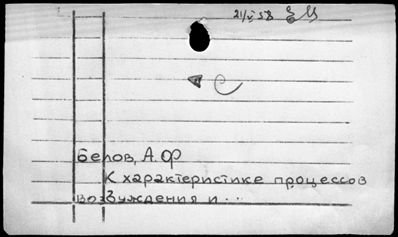 21/V 58
Белов, А.Ф
К характеристике процессов
возбуждения и ...